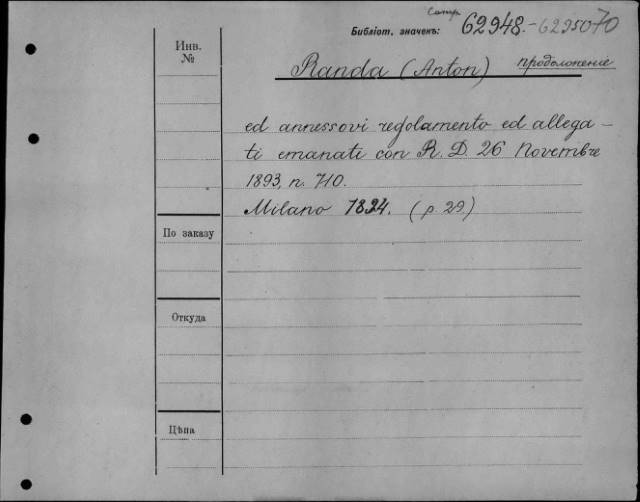 Библіот. значекъ: 62948.-6295070
Инв.
№
Randa (Anton) продолженіе
ed annessovi regolamento ed allega-
ti emanati con R. D. 26 Novembre
1893, n. 710.
Milano 1894. (p. 29.)
По заказу
Откуда
Цѣна